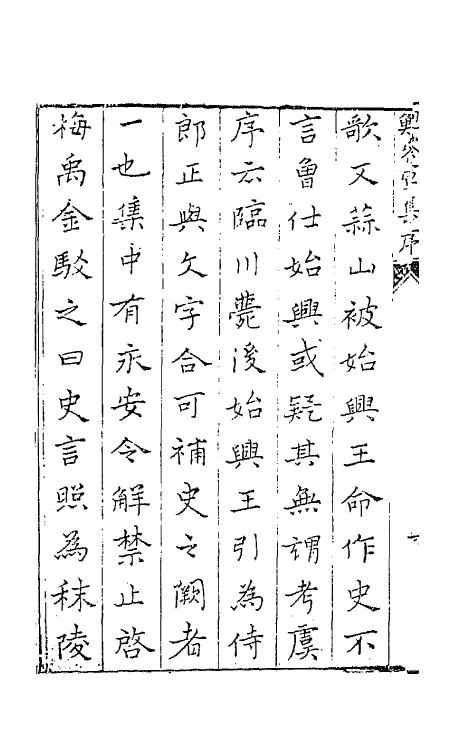 歌又蒜山被始興王命作史不
言魯仕始興或疑其無謂考虞
序云臨川薨後始興王引為侍
郎正與文字合可補史之闕者
一也集中有永安令解禁止啓
梅禹金駁之曰史言照為秣陵